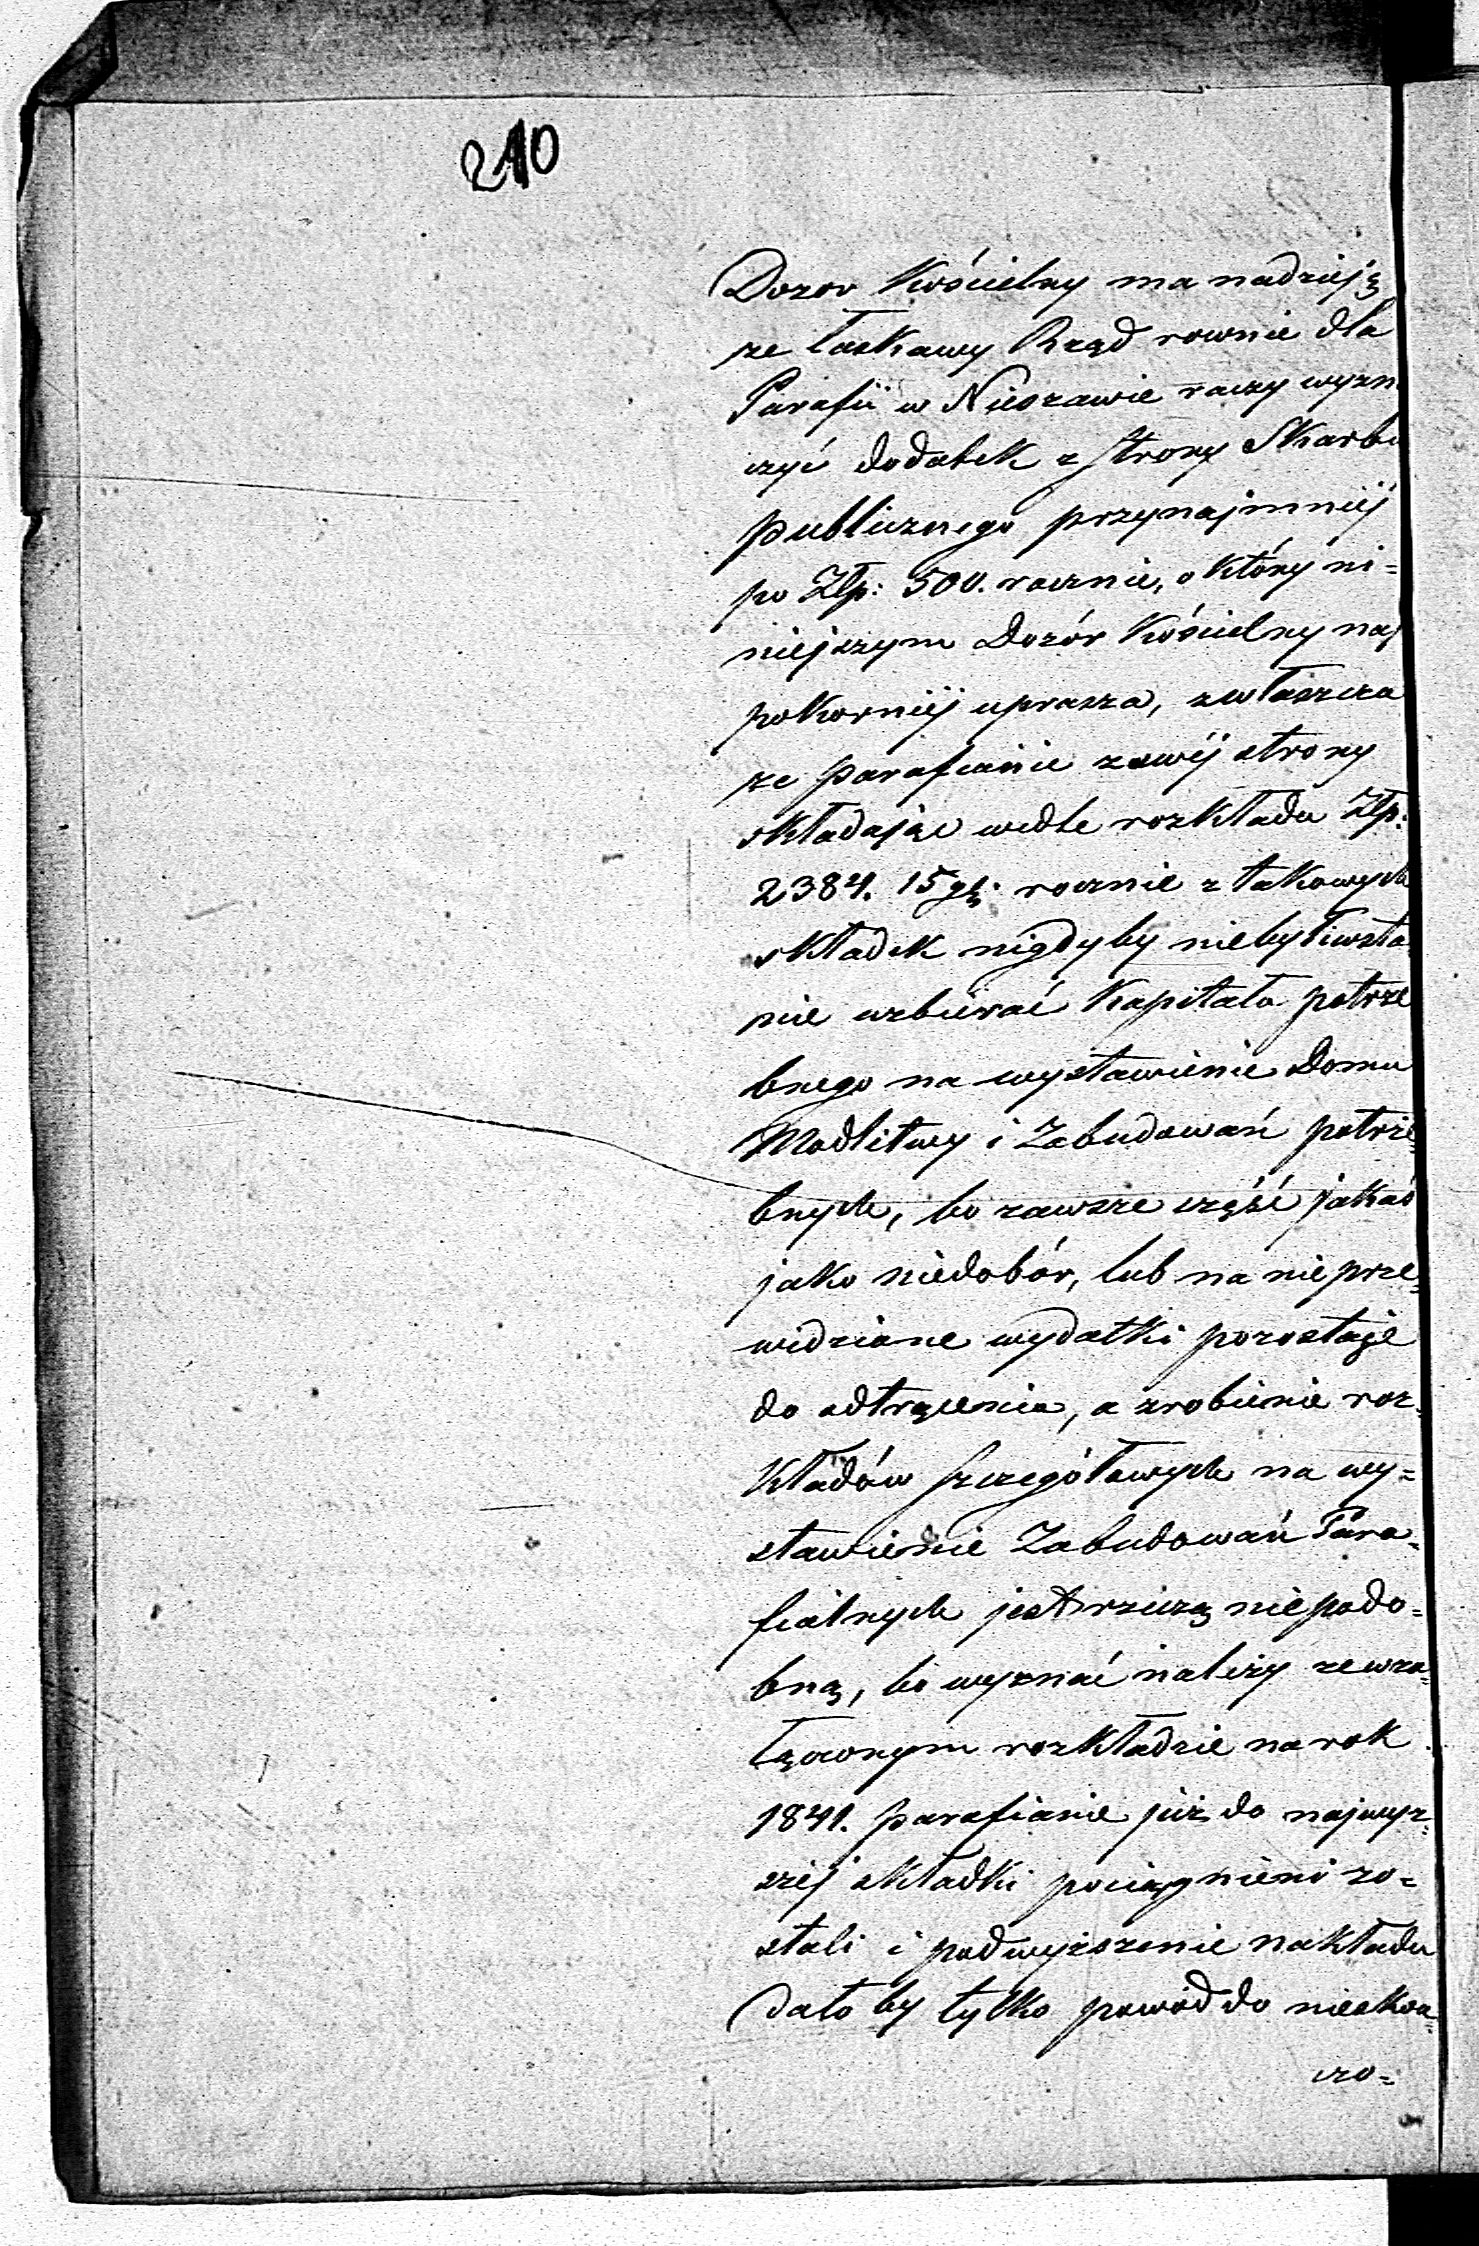 210
Dozor Kościelny ma nadzieję
ze łaskawy Rząd rownie dla
Parafii w Nieszawie raczy wyzn
czyć dodatek z strony Skarbu
publicznego przynajmniéj
po Złp: 500. rocznie, o który ni=
niejszym Dozór Kościelny naj
pokorniéj uprasza, zwłaszcza
ze parafianie zswéj strony
składając wedle rozkładu Złp:
2384. 15 gr: rocznie z takowych
składek nigdyby niebyli wsta
nie uzbierać Kapitału potrze
bnego na wystawienie Domu
Modlitwy i Zabudowań potrze
bnych, bo zawsze część jakaś
jako niedobór, lub na nieprze=
widziane wydatki pozostaje
do odtrącenia, a zrobienie roz=
kładów szczegółowych na wy=
stawienie Zabudowań Para=
fialnych jest rzeczą niepodo=
bną, bo wyznać należy ze wza=
łączonym rozkładzie na rok
1841. parafianie już do najwyż=
szej składki pociągnieni zo=
stali i podwyższenie nakładu
dało by tylko powód do nieskoń=
czo=